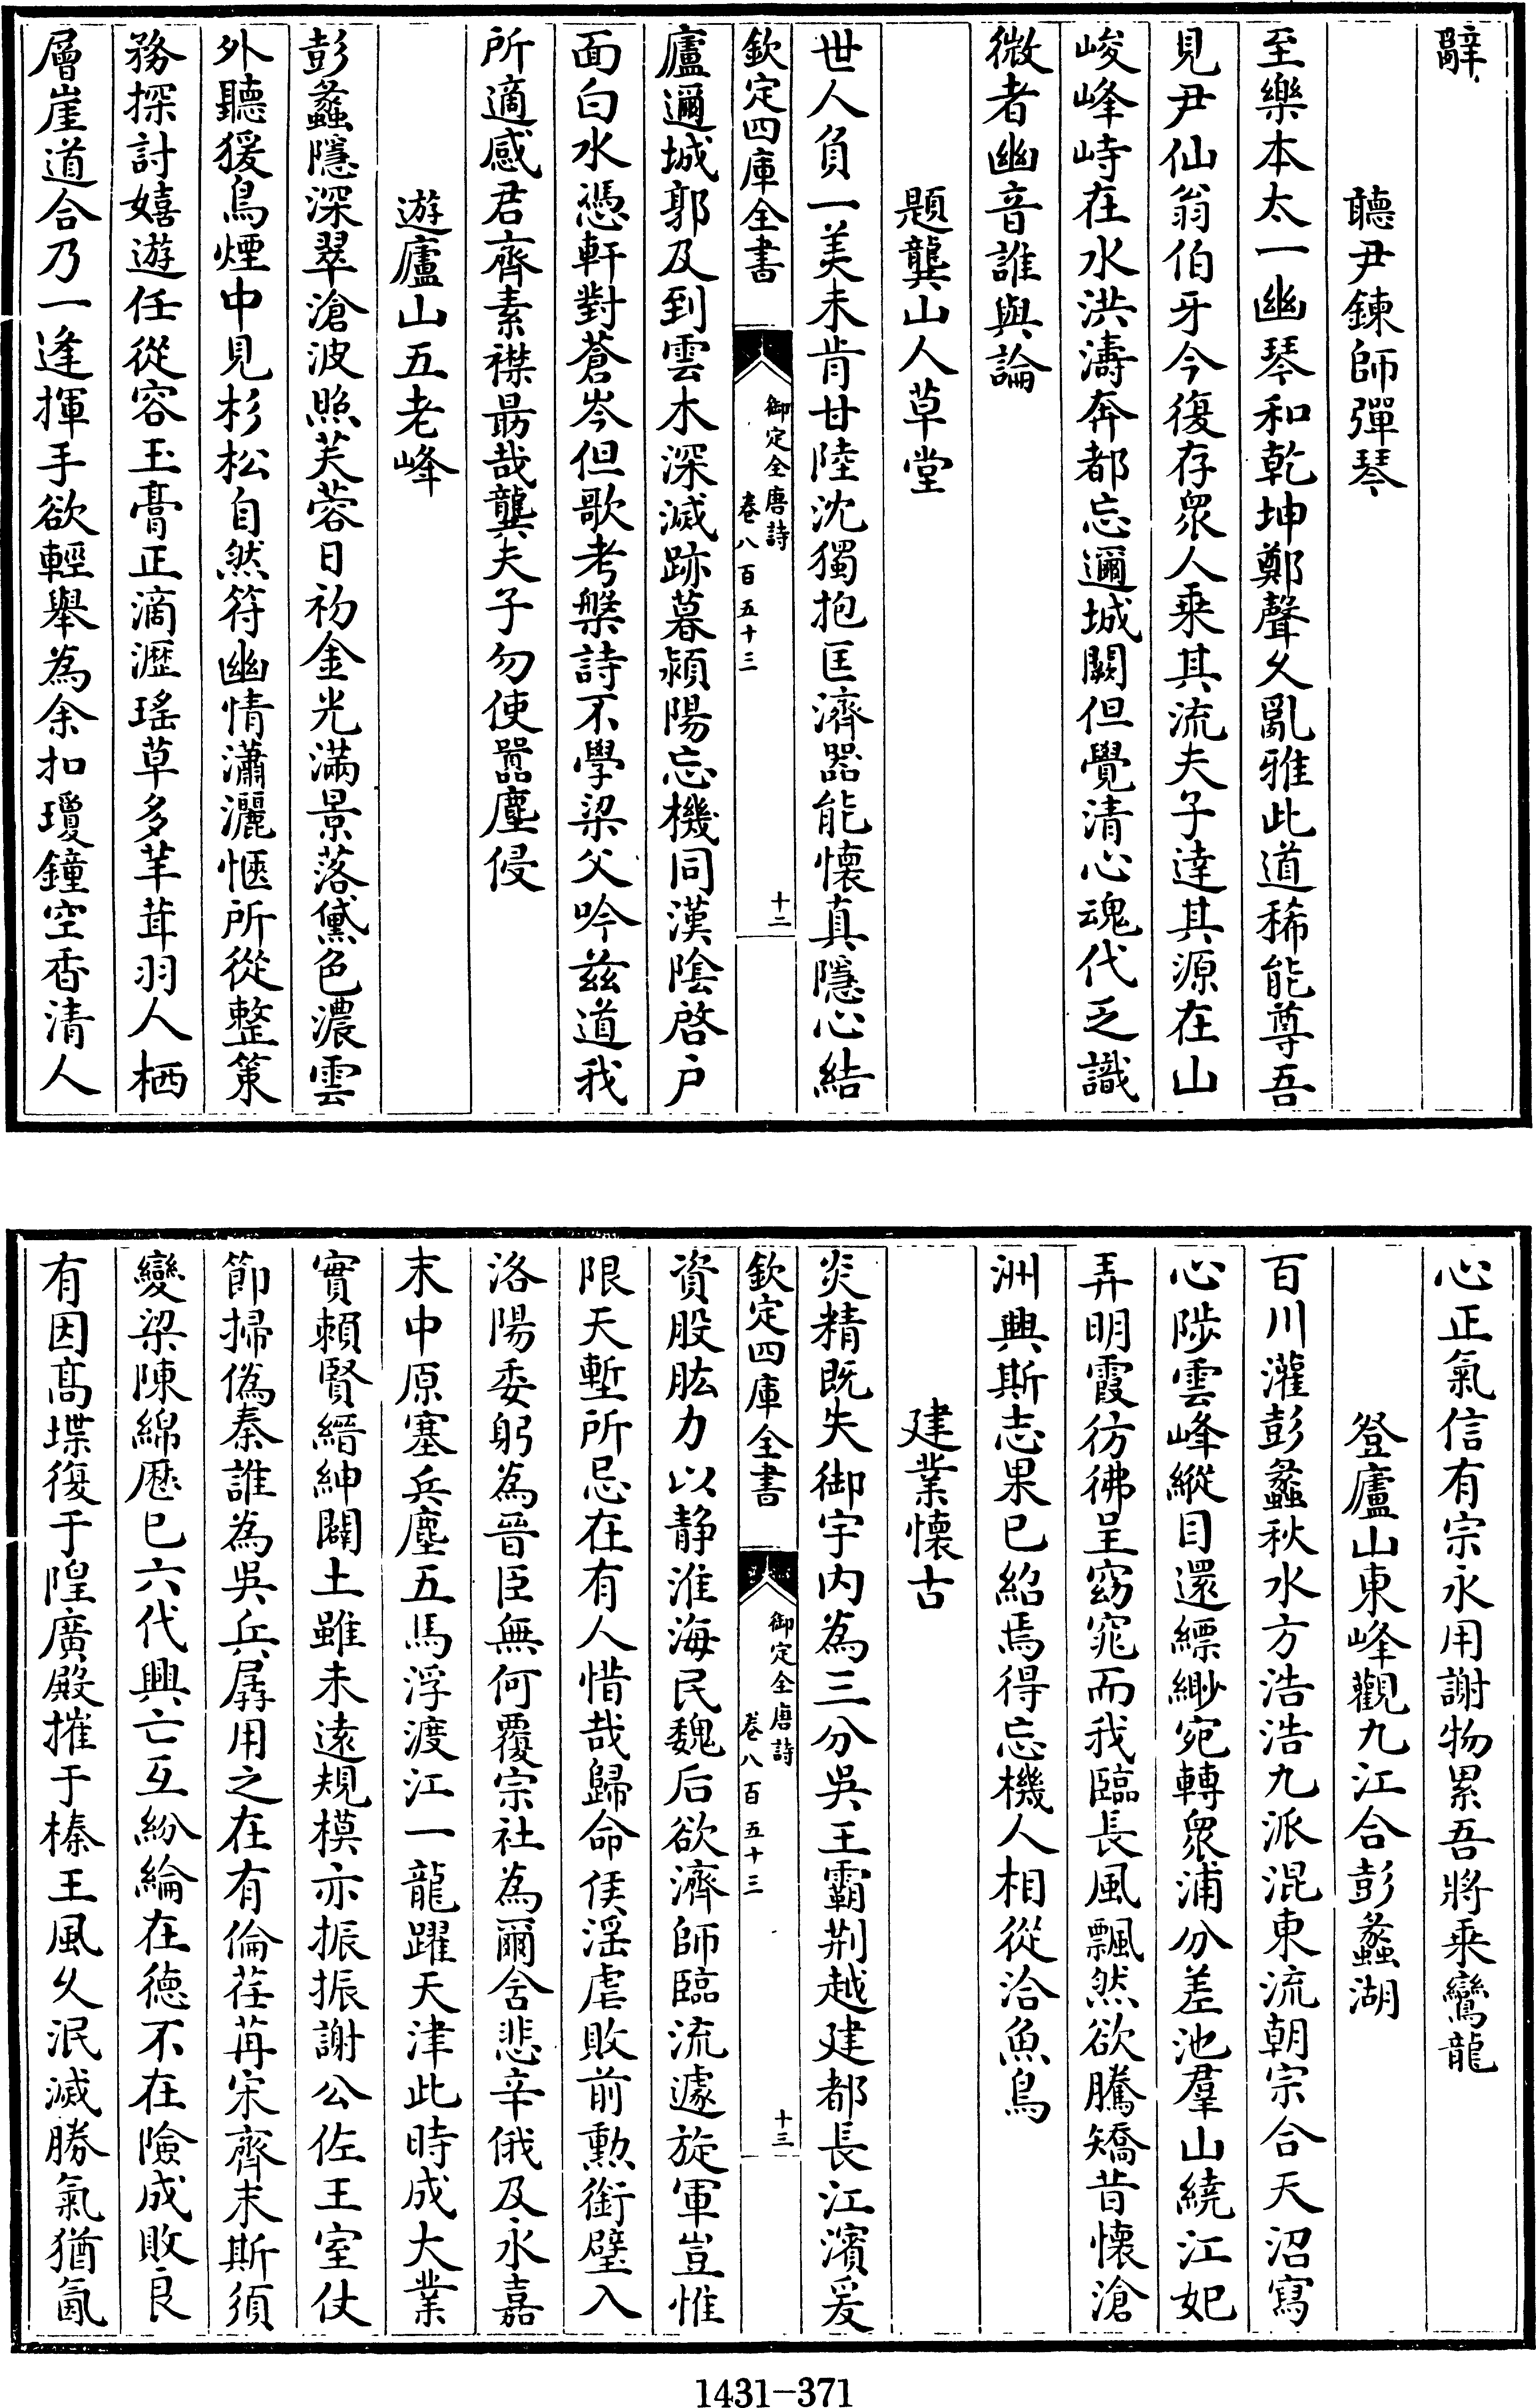 辭
聽尹鍊師彈琴
至樂本太一幽琴和乾坤鄭聲久亂雅此道稀能尊吾
見尹仙翁伯牙今復存眾人乘其流夫子達其源在山
峻峰峙在水洪濤奔都忘邇城闕但覺清心魂代乏識
微者幽音誰與論
題龔山人草堂
世人負一美未肯甘陸沈獨抱匡濟器能懷真隱心結
欽定四庫全書
御定全唐詩
卷八百五十三
十二
廬邇城郭及到雲木深滅跡慕潁陽忘機同漢陰啓户
面白水憑軒對蒼岑但歌考槃詩不學梁父吟兹道我
所適感君齊素襟勗哉龔夫子勿使囂塵侵
遊廬山五老峰
彭蠡隱深翠滄波照芙蓉日初金光滿景落黛色濃雲
外聽猨鳥煙中見杉松自然符幽情瀟灑愜所從整策
務探討嬉遊任從容玉膏正滴瀝瑤草多芊茸羽人栖
層崖道合乃一逢揮手欲輕舉為余扣瓊鐘空香清人
心正氣信有宗永用謝物累吾將乘鸞龍
登廬山東峰觀九江合彭蠡湖
百川灌彭蠡秋水方浩浩九派混東流朝宗合天沼寫
心陟雲峰縱目還縹緲宛轉眾浦分差池羣山繞江妃
弄明霞彷彿呈窈窕而我臨長風飄然欲騰矯昔懷滄
洲興斯志果已紹焉得忘機人相從洽魚鳥
建業懷古
炎精既失御宇内為三分吳王霸荆越建都長江濱爰
欽定四庫全書
御定全唐詩
卷八百五十三
十三
資股肱力以静淮海民魏后欲濟師臨流遽旋軍豈惟
限天塹所忌在有人惜哉歸命侯淫虐敗前勲銜璧入
洛陽委躬為晉臣無何覆宗社為爾含悲辛俄及永嘉
末中原塞兵塵五馬浮渡江一龍躍天津此時成大業
實賴賢縉紳闢土雖未遠規模亦振振謝公佐王室仗
節掃偽秦誰為吳兵孱用之在有倫荏苒宋齊末斯須
變梁陳綿歷已六代興亡互紛綸在德不在險成敗良
有因高堞復于隍廣殿摧于榛王風久泯滅勝氣猶氤
1431-371